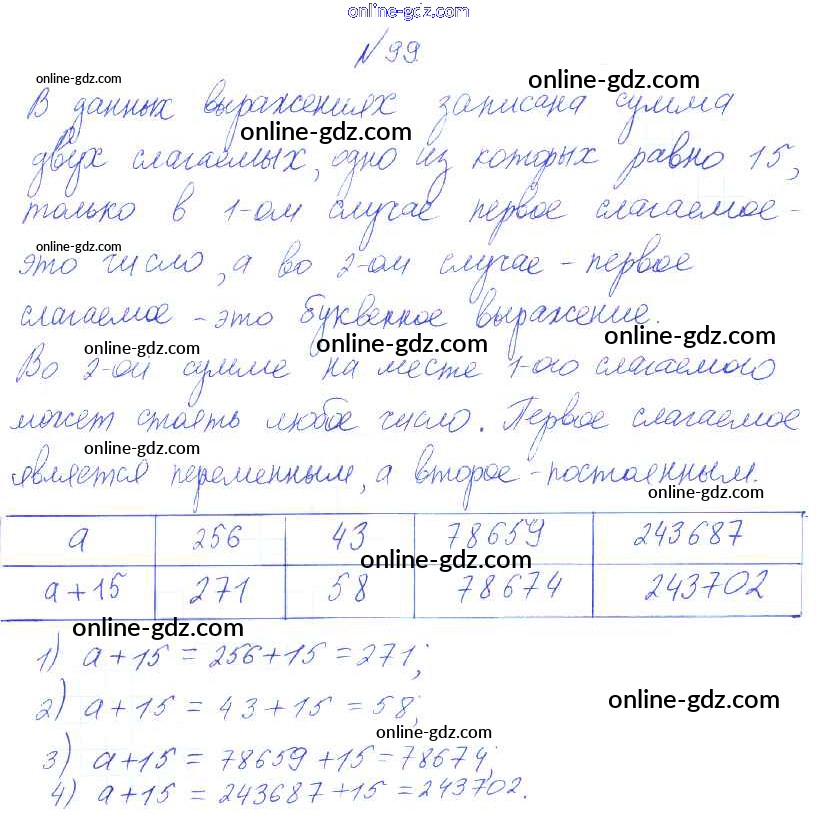 online-gdz.com
№99
online-gdz.com
online-gdz.com
В данных выражениях записана сумма
online-gdz.com
двух слагаемых, одно из которых равно 15,
только в 1-ом случае первое слагаемое -
online-gdz.com
это число, а во 2-ом случае - первое
слагаемое - это буквенное выражение.
online-gdz.com
online-gdz.com
Во 2-ой сумме на месте 1-ого слагаемого
может стоять любое число. Первое слагаемое
online-gdz.com
является переменным, а второе - постоянным.
online-gdz.com
a 256 43 78659 243687
online-gdz.com
a+15 271 58 78674 243702
online-gdz.com
1) a+15 = 256+15 = 271;
online-gdz.com
2) a+15 = 43+15 = 58;
online-gdz.com
3) a+15 = 78659+15 = 78674;
4) a+15 = 243687+15 = 243702.
online-gdz.com